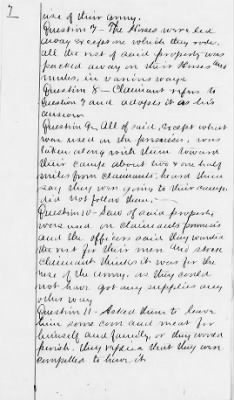 7
use of their army.
Question 7 - The Horses were led
away except one which they rode.
all the rest of said property was
packed away on their Horses and
mules, in various ways
Question 8 - Claimant refers to
Question 7 and adopts it as his
answer
Question 9 - All of said, except what
was used on the premises, was
taken along with them toward
their camp about two & one half
miles from claimants. heard them
say they were going to their camp.
did not follow them. -
Question 10 - Some of said property
were used on claimants premises
and the officers said they wanted
the rest for their men and
claimant thinks it was for the
use of the army, as they could
not have got any supplies any
other way
Question 11 - Asked them to leave
him some corn and meat for
himself and family, or they would
perish. they replied that they were
compelled to have it